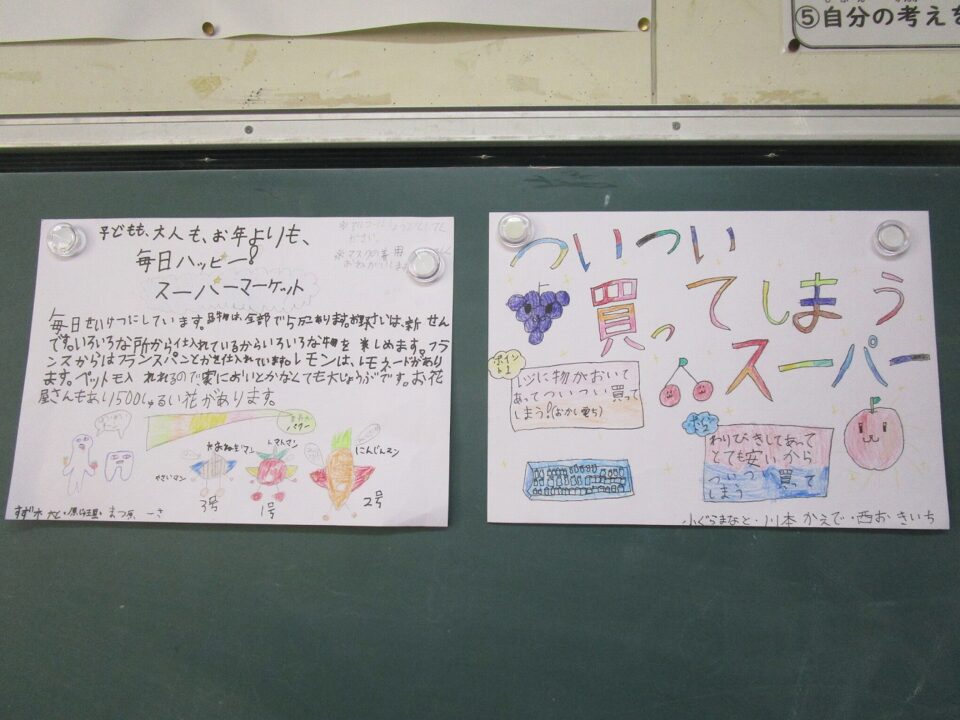 ⑤自分の考えを
子ども、大人も、お年よりも、
毎日ハッピー!
スーパーマーケット
※アルコールしょうどくしてください。
※マスクの着用おねがいします
毎日せいけつにしています。品物は、全部で
あります。お野さいは、新せん
です。いろいろな所から仕入れているからいろいろな物を楽しめます。フラ
ンスからはフランスパンとかを仕入れています。レモンは、レモネードがあり
ます。ペットも入れれるので家においとかなくても大じょうぶです。お花
屋さんもあり1500しゅるい花があります。
パワー
やさいマン
たまねぎマン
トマトマン
にんじんマン
3号
1号
2号
ついつい
買ってしまう
スーパー
ポイント1
レジに物がおいて
あってついつい買って
しまう!(おかし電ち)
わりびきしてあって
とても安いから
ついつい買って
しまう
小ぐらまなと・川本かえで・西おきいち